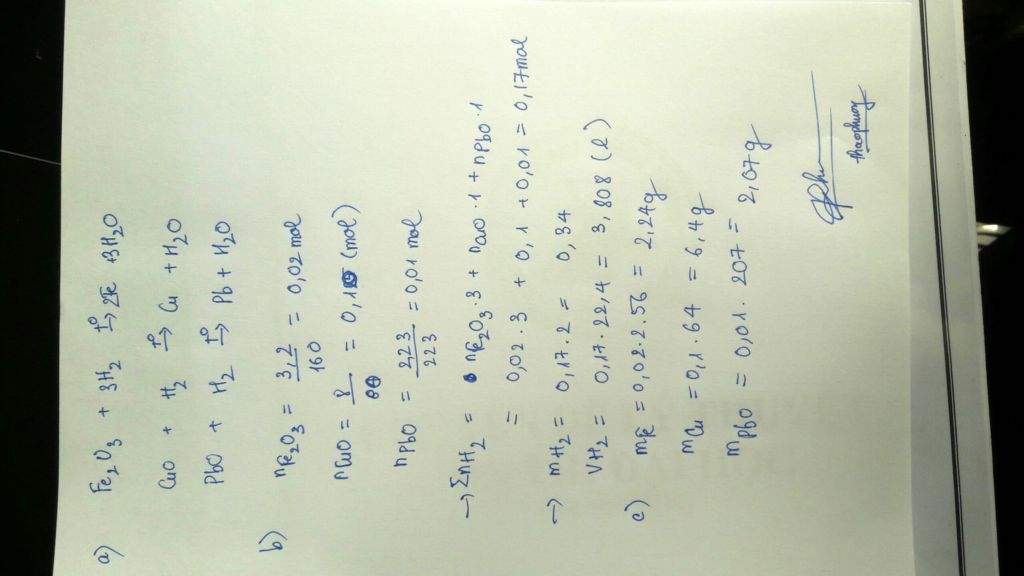 a) Fe₂O₃ + 3H₂ →t° 2Fe + 3H₂O
CuO + H₂ →t° Cu + H₂O
PbO + H₂ →t° Pb + H₂O
b) nFe₂O₃ = 3,2/160 = 0,02 mol
nCuO = 8/80 = 0,1 (mol)
nPbO = 2,23/223 = 0,01 mol
→ ΣnH₂ = nFe₂O₃ . 3 + nCuO . 1 + nPbO . 1
= 0,02 . 3 + 0,1 + 0,01 = 0,17 mol
→ mH₂ = 0,17 . 2 = 0,34
VH₂ = 0,17 . 22,4 = 3,808 (l)
c) mFe = 0,02 . 2 . 56 = 2,24g
mCu = 0,1 . 64 = 6,4g
mPbO = 0,01 . 207 = 2,07g
thaophuong